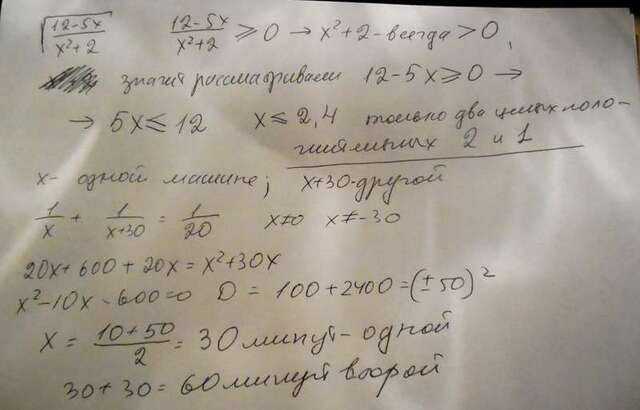 √(12-5x)/(x²+2)   (12-5x)/(x²+2) ≥ 0 → x²+2 - всегда > 0,
значит рассматриваем 12-5x ≥ 0 →
→ 5x ≤ 12   x ≤ 2,4 только два целых поло-
жительных 2 и 1
x - одной машине; x+30 - другой
1/x + 1/(x+30) = 1/20   x≠0   x≠-30
20x+600+20x = x²+30x
x²-10x-600=0   D = 100+2400=(±50)²
x = (10+50)/2 = 30 минут - одной
30+30=60 минут второй